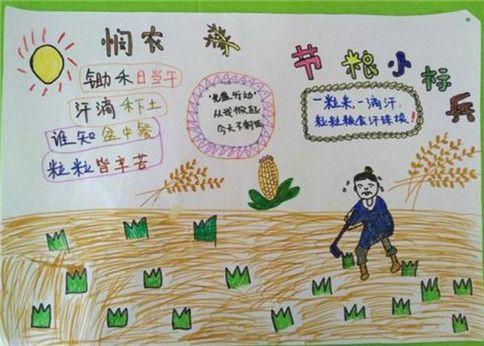 悯农
锄禾日当午
汗滴禾下土
谁知盘中餐
粒粒皆辛苦
“光盘行动”
从我做起
今天不剩饭
节粮小标兵
一粒米,一滴汗,
粒粒粮食汗珠换!